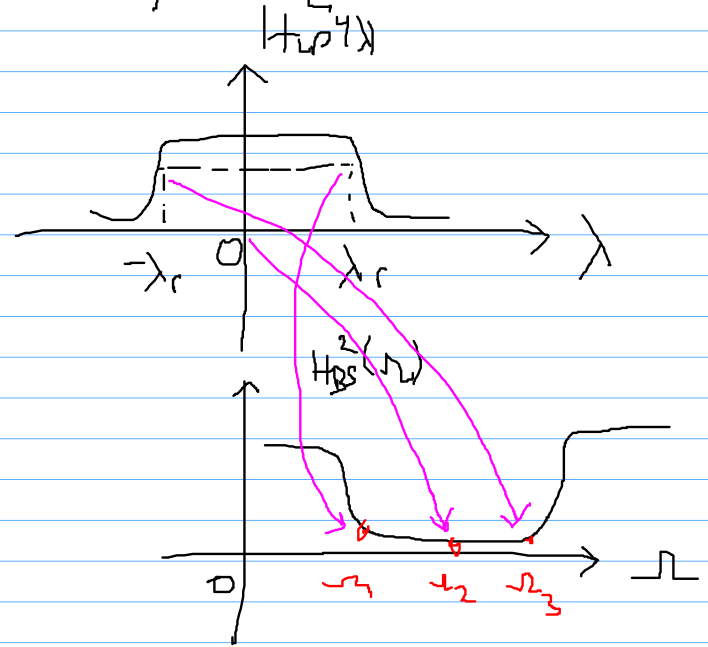 |H_LP(λ)|
0
-λ_r
λ_r
λ
H_BS^2(Ω)
0
Ω_1
Ω_2
Ω_3
Ω